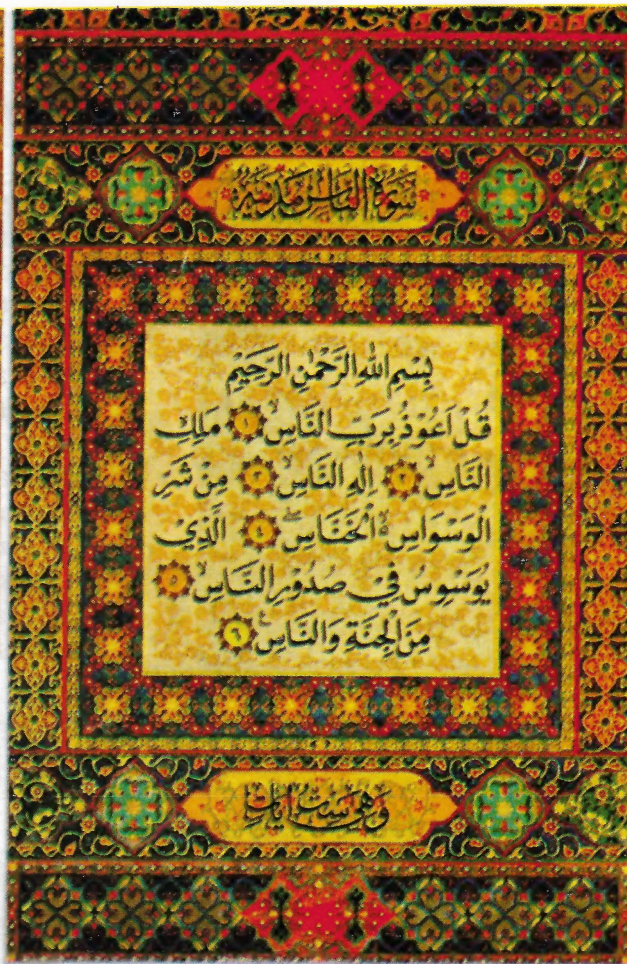 سُورَةُ النَّاسِ مَدَنِيَّةٌ
بِسْمِ اللهِ الرَّحْمٰنِ الرَّحِيْمِ
قُلْ اَعُوْذُ بِرَبِّ النَّاسِۙ ١ مَلِكِ
النَّاسِۙ ٢ اِلٰهِ النَّاسِۙ ٣ مِنْ شَرِّ
الْوَسْوَاسِ ەۙ الْخَنَّاسِۖ ٤ الَّذِيْ
يُوَسْوِسُ فِيْ صُدُوْرِ النَّاسِۙ ٥
مِنَ الْجِنَّةِ وَالنَّاسِ ۚ ٦
وَهِيَ سِتُّ اٰيَاتٍ